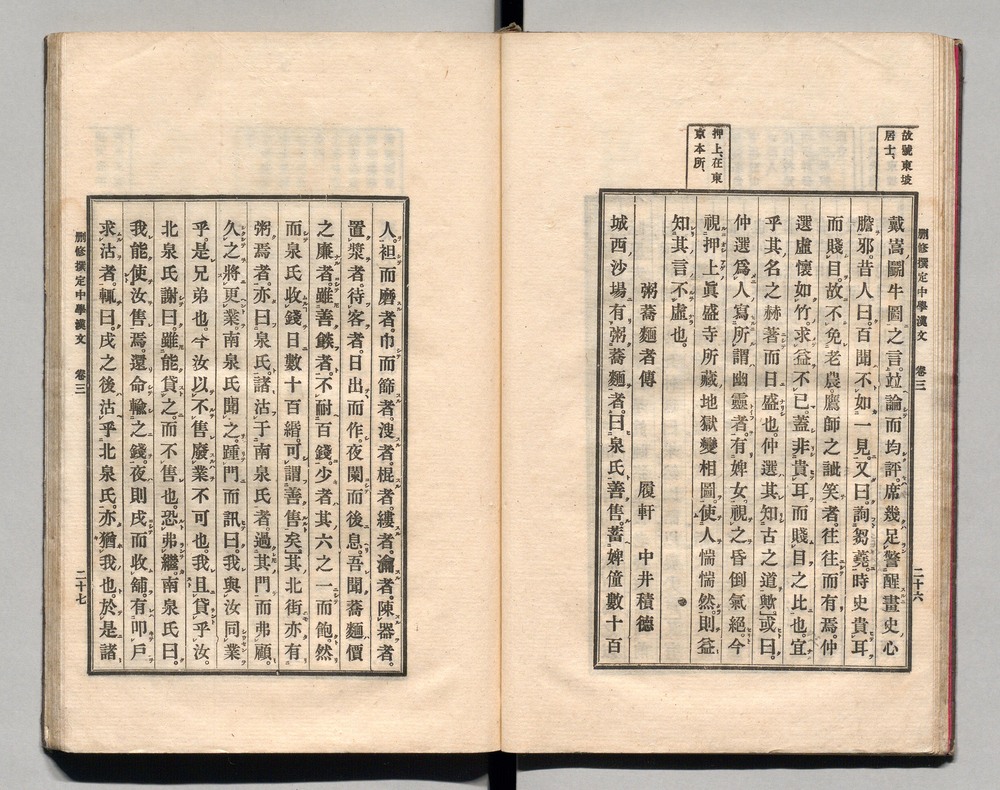 故號東坡
居士、
押上、在東
京本所、
刪修撰定中學漢文　卷三　二十六
戴嵩鬭牛圖之言。竝論而均評。席幾足警醒畫史心
膽邪。昔人曰。百聞不如一見。又曰。詢芻蕘。時史貴耳
而賤目。故不免老農鷹師之訾笑者。往往而有焉。仲
選虛懷如竹。求益不已。蓋非貴耳而賤目之比也。宜
乎其名之赫著而日盛也。仲選其知古之道歟」或曰。
仲選爲人寫所謂幽靈者。有婢女。視之昏倒氣絕。今
視押上眞盛寺所藏地獄變相圖。使人惴惴然。則益
知其言不虛也。
粥蕎麵者傳　履軒　中井積德
城西沙場有粥蕎麵者。曰泉氏。善售。蓄婢僮數十百
人。袒而磨者。巾而篩者。溲者。棍者。縷者。瀹者。陳器者。
置漿者。待客者。日出而作。夜闌而後息。吾聞蕎麵價
之廉者。雖善餤者。不耐百錢。少者其六之一而飽。然
而泉氏收錢日數十百緡。可謂善售矣」其北街亦有
粥焉者。亦曰泉氏。諸沽于南泉氏者。過其門而弗顧。
久之將更業。南泉氏聞之。踵門而訊曰。我與汝同業
乎。是兄弟也。今汝以不售廢業不可也。我且貸乎汝。
北泉氏謝曰。雖能貸之。而不售也。恐弗繼。南泉氏曰。
我能使汝售焉。還命輸之錢。夜則戌而收舖。有叩戶
求沽者。輒曰。戌之後沽乎北泉氏。亦猶我也。於是諸
刪修撰定中學漢文　卷三　二十七